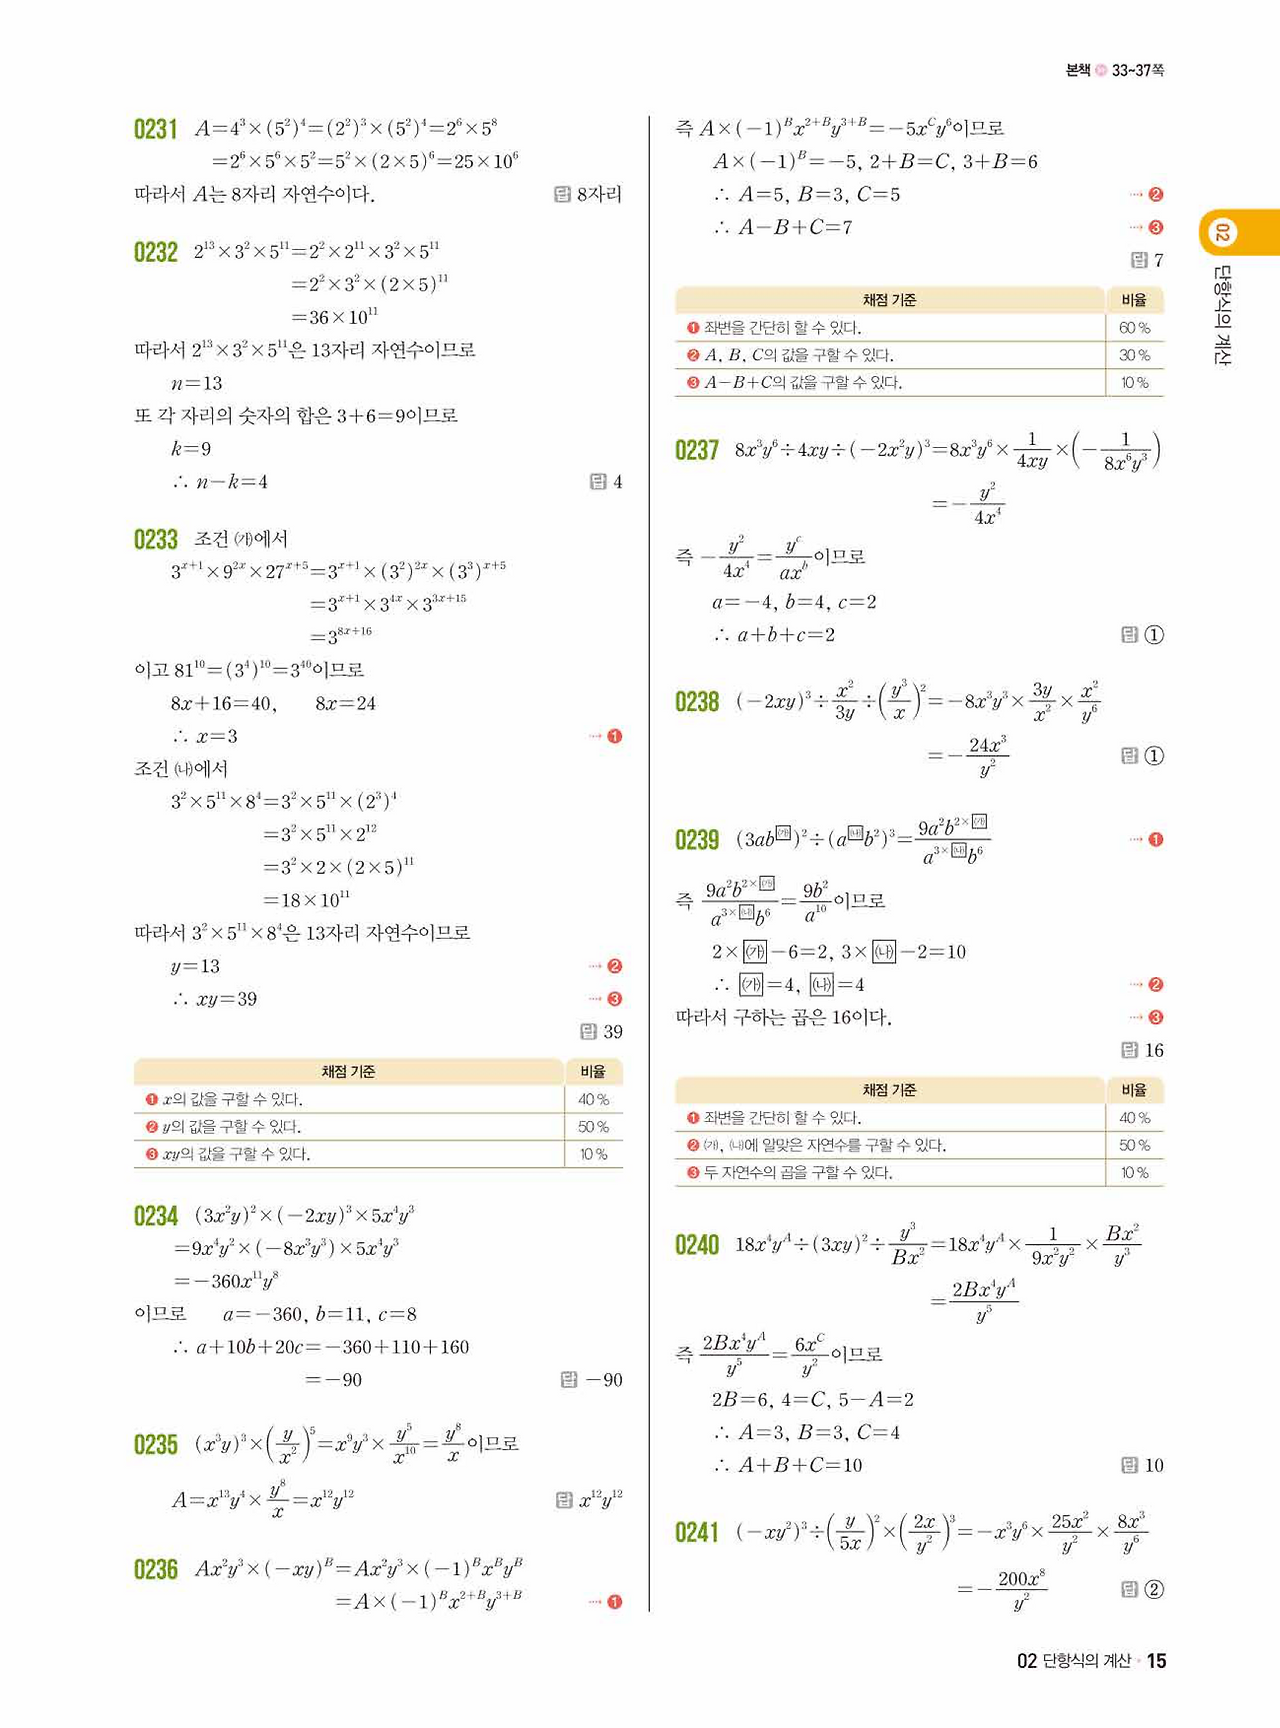 본책 33~37쪽
0231 A=4³×(5²)⁴=(2²)³×(5²)⁴=2⁶×5⁸
=2⁶×5⁶×5²=5²×(2×5)⁶=25×10⁶
따라서 A는 8자리 자연수이다. 답 8자리
0232 2¹³×3²×5¹¹=2²×2¹¹×3²×5¹¹
=2²×3²×(2×5)¹¹
=36×10¹¹
따라서 2¹³×3²×5¹¹은 13자리 자연수이므로
n=13
또 각 자리의 숫자의 합은 3+6=9이므로
k=9
∴ n-k=4 답 4
0233 조건 ㈎에서
3^(x+1)×9^(2x)×27^(x+5)=3^(x+1)×(3²)^(2x)×(3³)^(x+5)
=3^(x+1)×3^(4x)×3^(3x+15)
=3^(8x+16)
이고 81¹⁰=(3⁴)¹⁰=3⁴⁰이므로
8x+16=40, 8x=24
∴ x=3 ··· ❶
조건 ㈏에서
3²×5¹¹×8⁴=3²×5¹¹×(2³)⁴
=3²×5¹¹×2¹²
=3²×2×(2×5)¹¹
=18×10¹¹
따라서 3²×5¹¹×8⁴은 13자리 자연수이므로
y=13 ··· ❷
∴ xy=39 ··· ❸
답 39
채점 기준 비율
❶ x의 값을 구할 수 있다. 40 %
❷ y의 값을 구할 수 있다. 50 %
❸ xy의 값을 구할 수 있다. 10 %
0234 (3x²y)²×(-2xy)³×5x⁴y³
=9x⁴y²×(-8x³y³)×5x⁴y³
=-360x¹¹y⁸
이므로 a=-360, b=11, c=8
∴ a+10b+20c=-360+110+160
=-90 답 -90
0235 (x³y)³×(y/x²)⁵=x⁹y³×y⁵/x¹⁰=y⁸/x이므로
A=x¹³y⁴×y⁸/x=x¹²y¹² 답 x¹²y¹²
0236 Ax²y³×(-xy)^B=Ax²y³×(-1)^B x^B y^B
=A×(-1)^B x^(2+B) y^(3+B) ··· ❶
즉 A×(-1)^B x^(2+B) y^(3+B)=-5x^C y⁶이므로
A×(-1)^B=-5, 2+B=C, 3+B=6
∴ A=5, B=3, C=5 ··· ❷
∴ A-B+C=7 ··· ❸
답 7
채점 기준 비율
❶ 좌변을 간단히 할 수 있다. 60 %
❷ A, B, C의 값을 구할 수 있다. 30 %
❸ A-B+C의 값을 구할 수 있다. 10 %
0237 8x³y⁶÷4xy÷(-2x²y)³=8x³y⁶×1/4xy×(-1/8x⁶y³)
=-y²/4x⁴
즉 -y²/4x⁴=y^c/ax^b이므로
a=-4, b=4, c=2
∴ a+b+c=2 답 ①
0238 (-2xy)³÷x²/3y÷(y³/x)²=-8x³y³×3y/x²×x²/y⁶
=-24x³/y² 답 ①
0239 (3ab^㈎)²÷(a^㈏b²)³=9a²b^(2×㈎)/a^(3×㈏)b⁶ ··· ❶
즉 9a²b^(2×㈎)/a^(3×㈏)b⁶=9b²/a¹⁰이므로
2×㈎-6=2, 3×㈏-2=10
∴ ㈎=4, ㈏=4 ··· ❷
따라서 구하는 곱은 16이다. ··· ❸
답 16
채점 기준 비율
❶ 좌변을 간단히 할 수 있다. 40 %
❷ ㈎, ㈏에 알맞은 자연수를 구할 수 있다. 50 %
❸ 두 자연수의 곱을 구할 수 있다. 10 %
0240 18x⁴y^A÷(3xy)²÷y³/Bx²=18x⁴y^A×1/9x²y²×Bx²/y³
=2Bx⁴y^A/y⁵
즉 2Bx⁴y^A/y⁵=6x^C/y²이므로
2B=6, 4=C, 5-A=2
∴ A=3, B=3, C=4
∴ A+B+C=10 답 10
0241 (-xy²)³÷(y/5x)²×(2x/y²)³=-x³y⁶×25x²/y²×8x³/y⁶
=-200x⁸/y² 답 ②
02 단항식의 계산
02 단항식의 계산 • 15